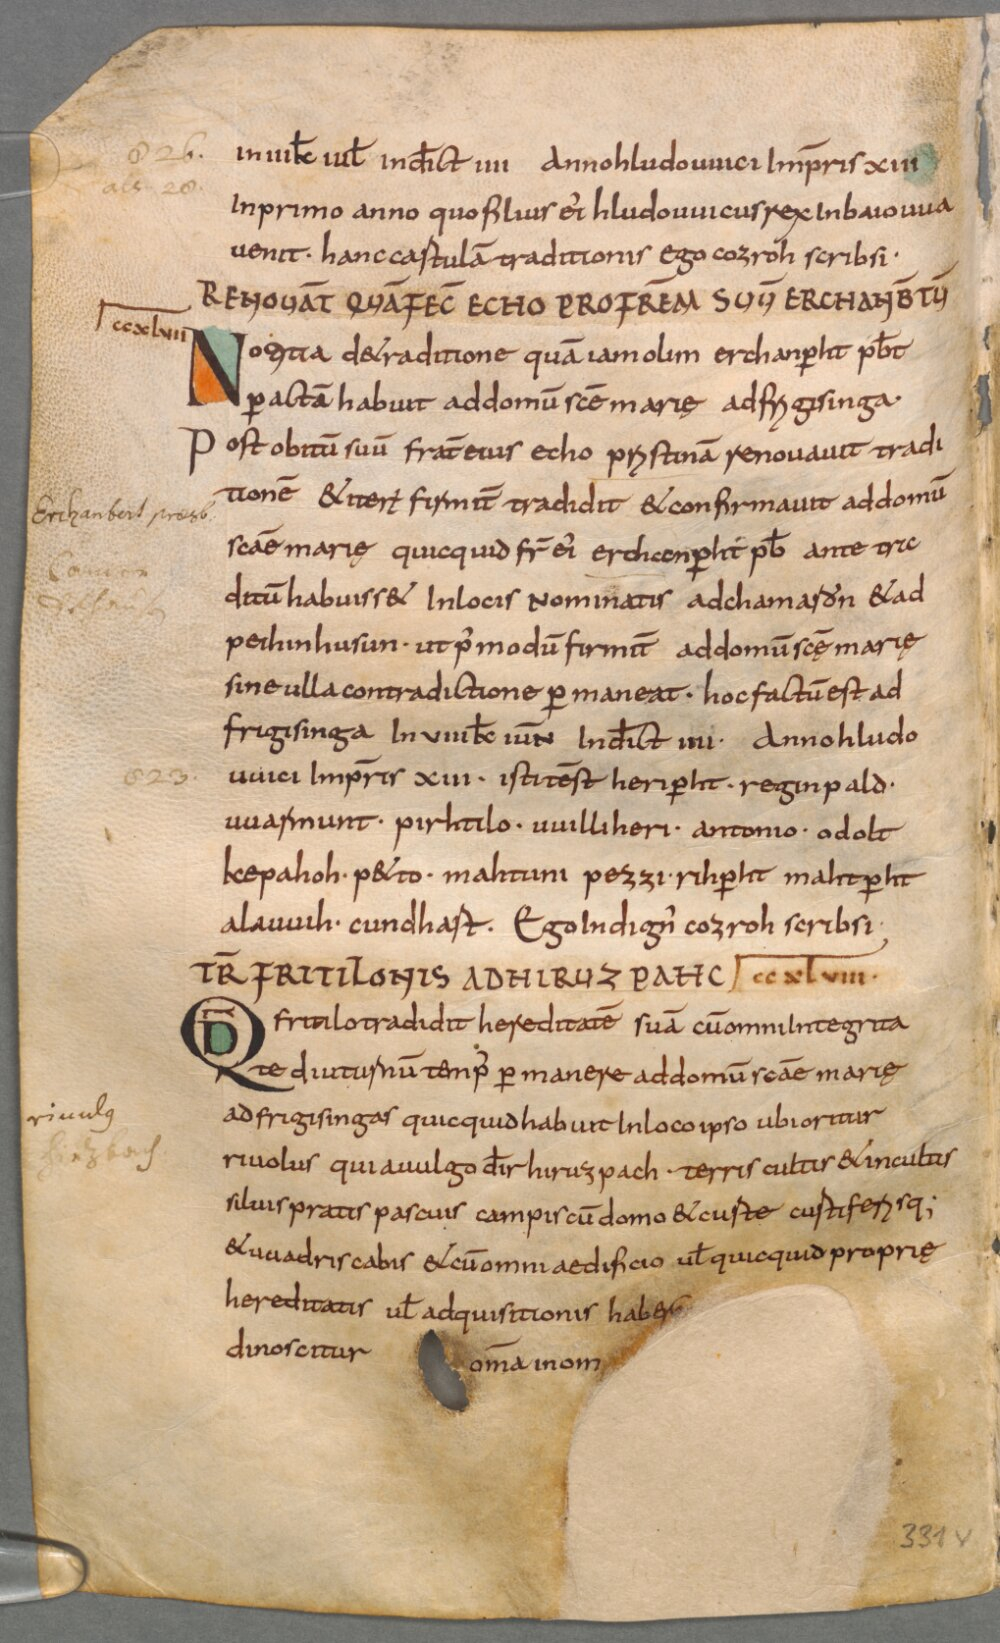 826.
als 28.
in viii kł iuł indīct iiii Anno hludouuici Imp̄ris xiii
In primo anno quo filius ei' hludouuicus rex In baiouua
uenit · hanc cartulā traditionis ego cozroh scribsi ·
RENOUAT̄ QUĀ FEC̄ ECHO PRO FR̄EM SUŪ ERCHANB̄TŪ
ccxlvii
Notitia de traditione quā iam olim erchanp̄ht pb̄t
p̱actā habuit ad domū scē marię ad frigisinga ·
Post obitū suū frat̄ eius echo pristinā renouauit tradi
tionē & iter̄ firmit̄ tradidit & confirmauit ad domū
Erchanbert presb.
scāe marię quicquid fr̄ ei' erchanp̄ht pb̄ ante tra
ditū habuiss& In locis Nominatis ad chamardūn & ad
pehinhusun · ut p̄ modū firmit̄ ad domū scę̄ marię
sine ulla contradictione p̱maneat · hoc factū est ad
frigisinga In viiii kł iuN̄ Indīct iiii · Anno hludo
823.
uuici Imp̄ris xiii · isti test̄ herip̄ht · reginpald ·
uuarmunt · pirhtilo · uuilliheri · antonio · odolt
kepahoh · p&to · mahtuni pezzi · rihp̄ht mahtp̄ht
alauuih · cundhart . Ego Indign' cozroh scribsi ·
TR̄ FRITILONIS AD HIRUZPAHC ccxlviii ·
QD̄ fritilo tradidit hereditatē suā cū omni Integrita
te diuturnū temp' p̱manere ad domū scāe marię
ad frigisingas quicquid habuit In loco ipso ubi oritur
rivulus
hirzbach
riuolus qui a uulgo dīr hiruzpach · terris cultis & incultis
siluis pratis pascuis campis cū domo & curte curtiferisq;
& uuadriscabis & cū omni aedificio uł quicquid proprię
hereditatis uł adquisitionis haber&
dinoscitur om̄a in om
331v